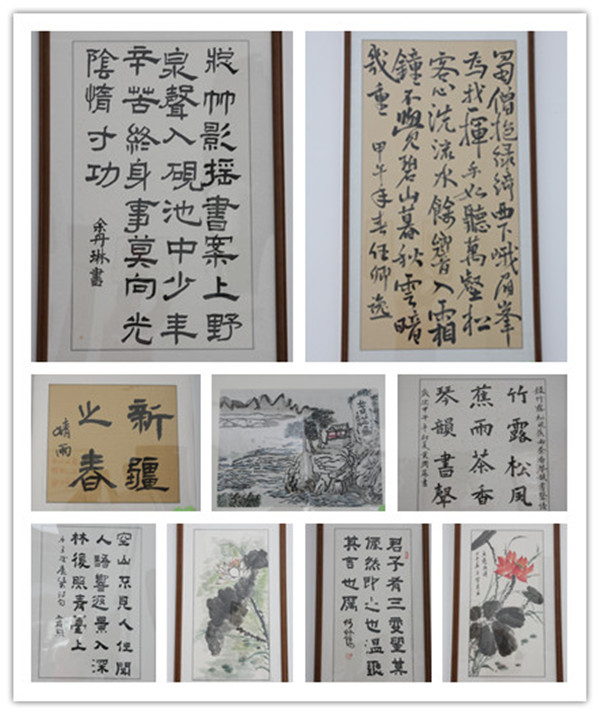 竹影摇書案上野
泉聲入硯池中少年
辛苦終身事莫向光
陰惰寸功
余丹琳書
蜀僧抱緑綺西下峨眉峯
為我一揮手如聽萬壑松
客心洗流水餘響入霜
鐘不覺碧山暮秋雲暗
幾重
甲午年春任卿逸
新疆
之春
晴雨
竹露松風
蕉雨茶香
琴韻書聲
空山不見人但聞
人語響返景入深
林復照青臺上
君子有三變望其
儼然即之也温聽
其言也厲